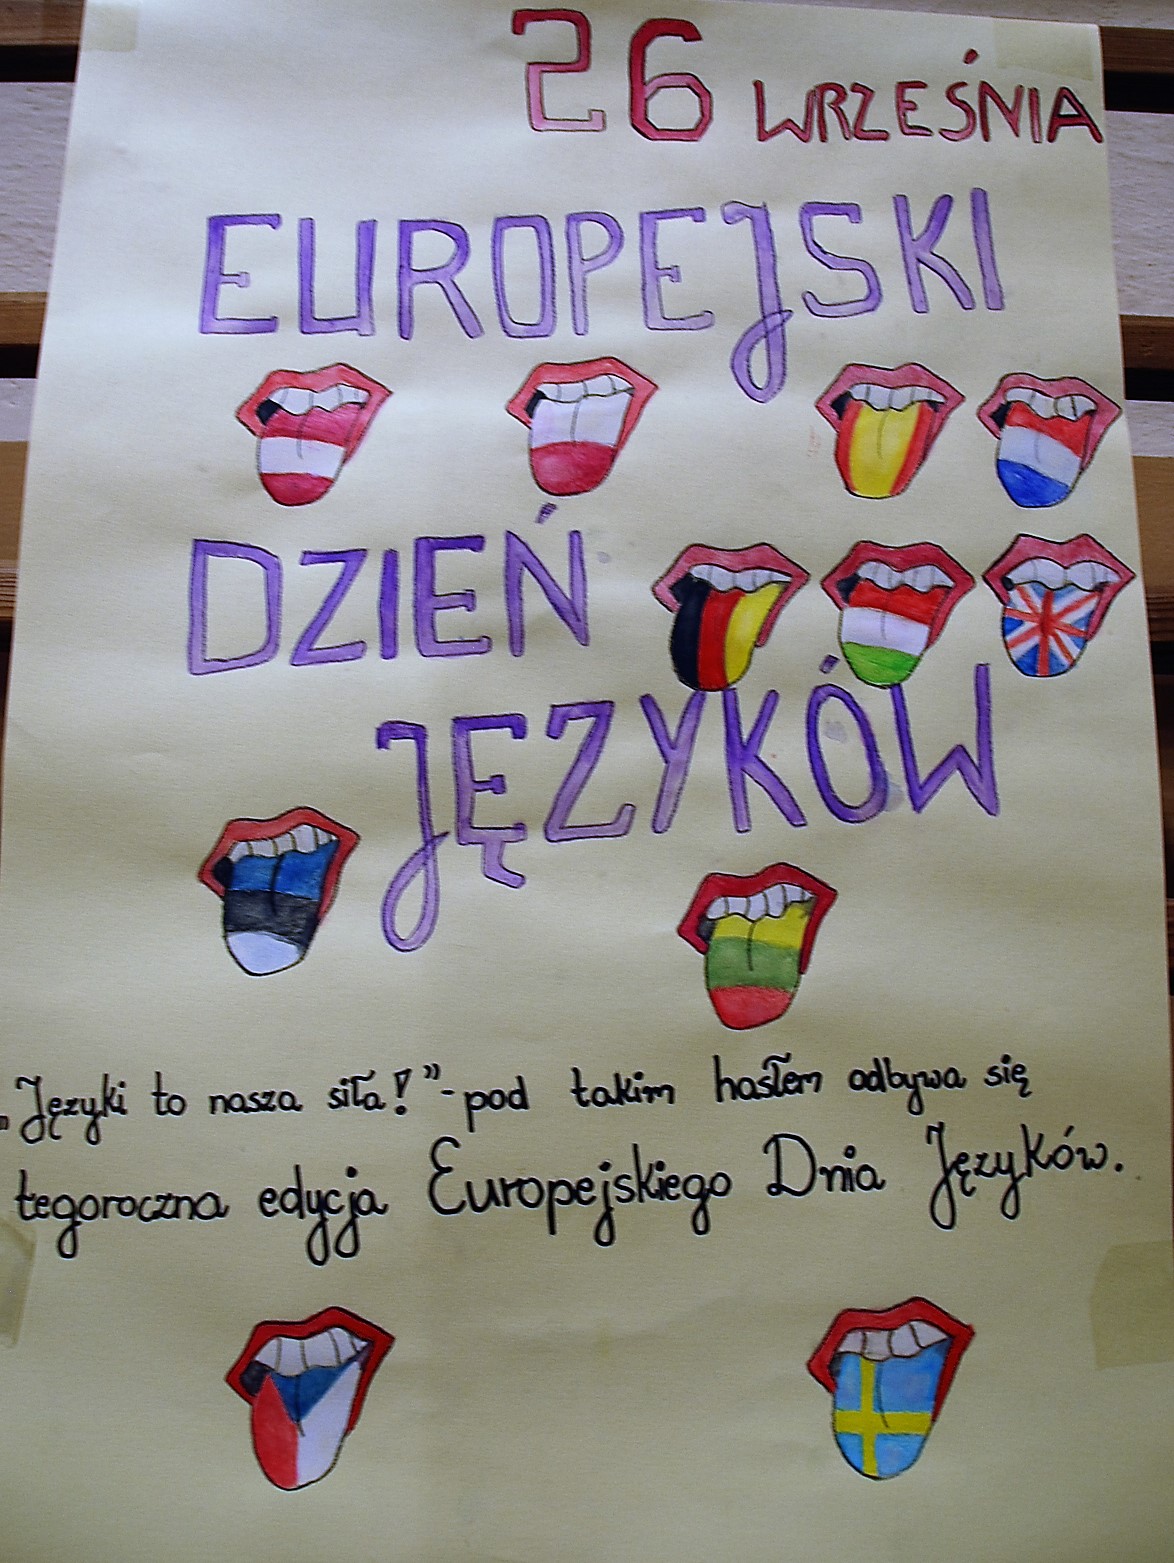 26 WRZEŚNIA
EUROPEJSKI
DZIEŃ
JĘZYKÓW
„Języki to nasza siła!”-pod takim hasłem odbywa się
tegoroczna edycja Europejskiego Dnia Języków.